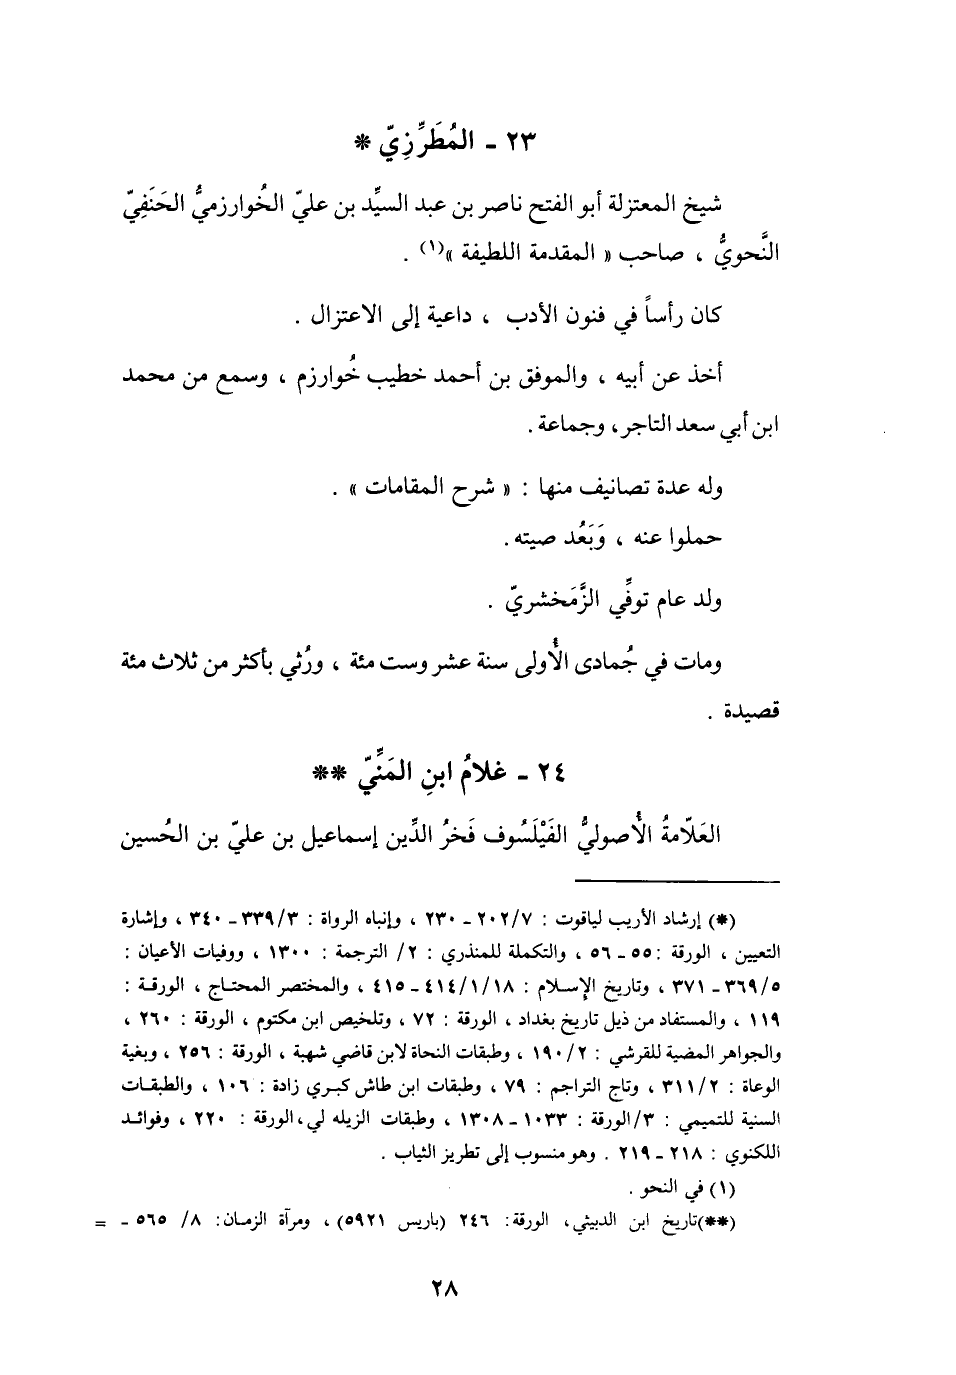 ٢٣ - المُطَرِّزِيّ *
شيخ المعتزلة أبو الفتح ناصر بن عبد السيِّد بن عليّ الخُوارزميُّ الحَنَفِيّ
النَّحويُّ ، صاحب « المقدمة اللطيفة »(١) .
كان رأساً في فنون الأدب ، داعية إلى الاعتزال .
أخذ عن أبيه ، والموفق بن أحمد خطيب خُوارزم ، وسمع من محمد
ابن أبي سعد التاجر، وجماعة .
وله عدة تصانيف منها : « شرح المقامات » .
حملوا عنه ، وَبَعُد صيته .
ولد عام توفِّي الزَّمَخشريّ .
ومات في جُمادى الأُولى سنة عشر وست مئة ، ورُثي بأكثر من ثلاث مئة
قصيدة .
٢٤ - غلامُ ابنِ المَنِّيّ **
العَلّامةُ الأُصوليُّ الفَيْلَسُوف فَخرُ الدِّين إسماعيل بن عليّ بن الحُسين
(*) إرشاد الأريب لياقوت : ٧/ ٢٠٢ - ٢٣٠ ، وإنباه الرواة : ٣/ ٣٣٩ - ٣٤٠ ، وإشارة
التعيين ، الورقة : ٥٥ - ٥٦ ، والتكملة للمنذري : ٢/ الترجمة : ١٣٠٠ ، ووفيات الأعيان :
٥/ ٣٦٩ - ٣٧١ ، وتاريخ الإسلام : ١٨/ ١/ ٤١٤ - ٤١٥ ، والمختصر المحتاج ، الورقة :
١١٩ ، والمستفاد من ذيل تاريخ بغداد ، الورقة : ٧٢ ، وتلخيص ابن مكتوم ، الورقة : ٢٦٠ ،
والجواهر المضية للقرشي : ٢/ ١٩٠ ، وطبقات النحاة لابن قاضي شهبة ، الورقة : ٢٥٦ ، وبغية
الوعاة : ٢/ ٣١١ ، وتاج التراجم : ٧٩ ، وطبقات ابن طاش كبري زادة : ١٠٦ ، والطبقات
السنية للتميمي : ٣/ الورقة : ١٠٣٣ - ١٣٠٨ ، وطبقات الزيله لي، الورقة : ٢٢٠ ، وفوائد
اللكنوي : ٢١٨ - ٢١٩ . وهو منسوب إلى تطريز الثياب .
(١) في النحو .
(**) تاريخ ابن الدبيثي، الورقة: ٢٤٦ (باريس ٥٩٢١) ، ومرآة الزمان: ٨/ ٥٦٥ - =
٢٨